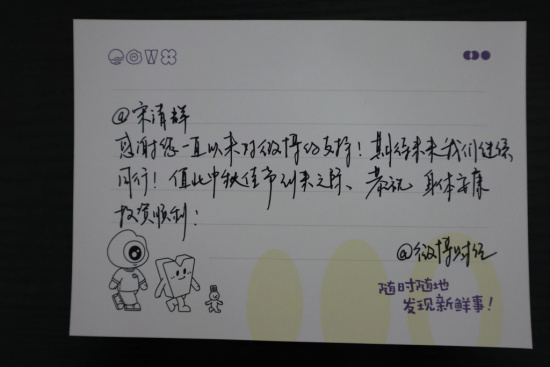 @宋清辉
感谢您一直以来对微博的支持！期待未来我们继续
同行！值此中秋佳节到来之际、恭祝 身体安康
投资顺利！
@微博财经
随时随地
发现新鲜事！